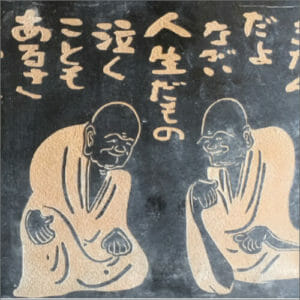 だよ
なあ
人生だもの
泣く
ことも
あるさ